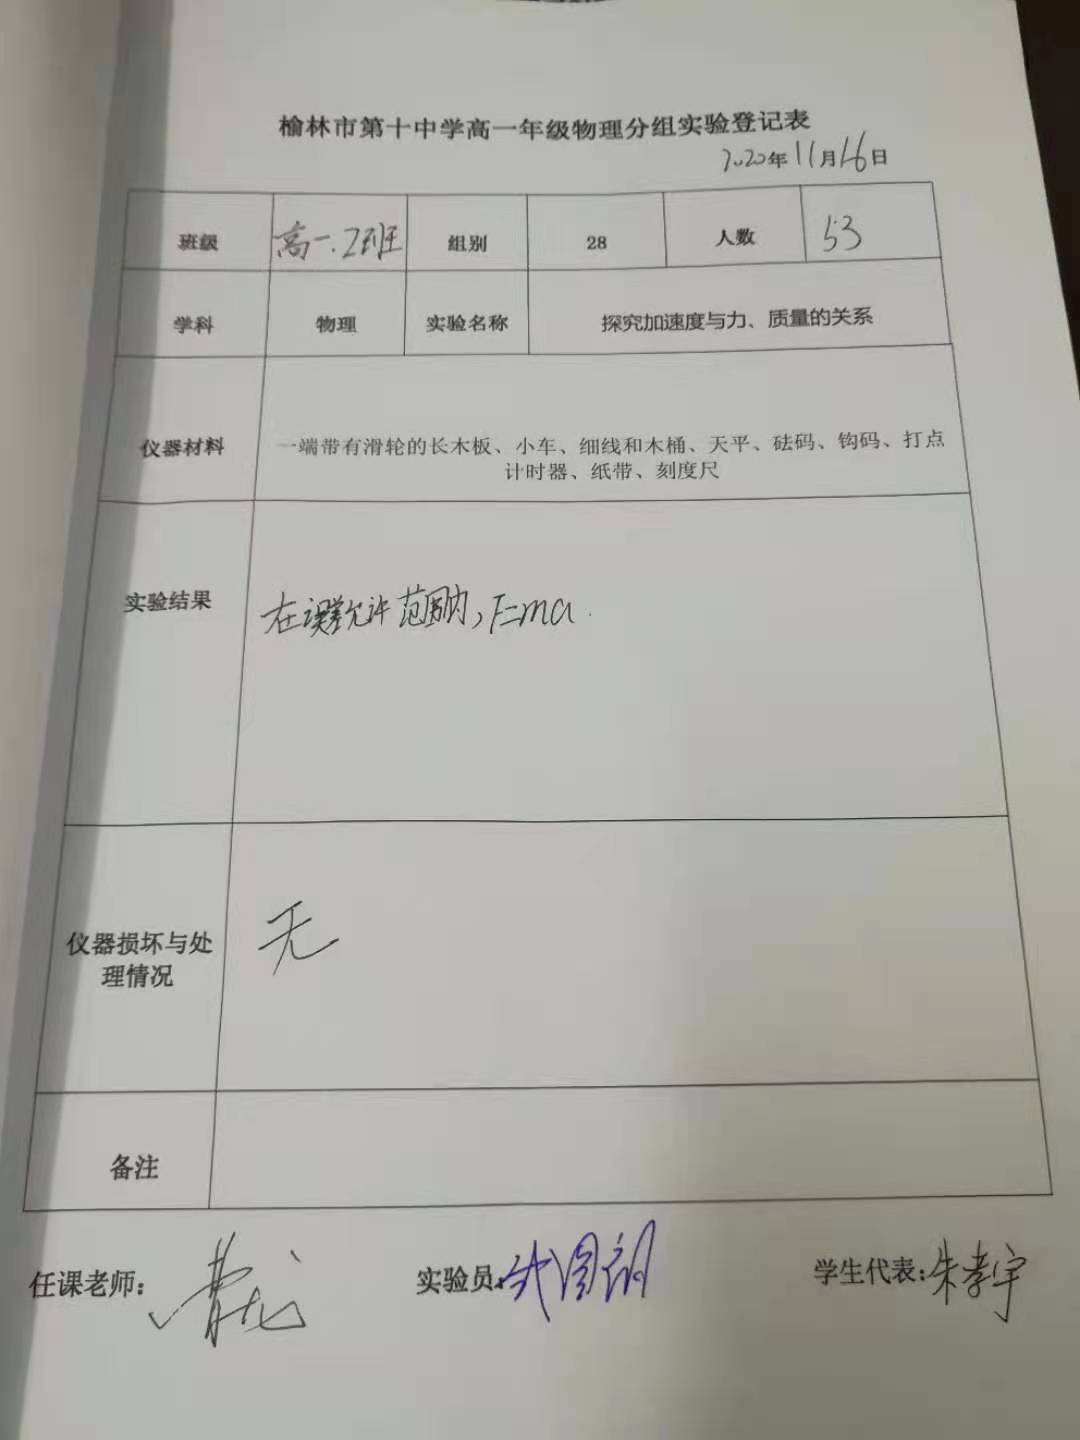 榆林市第十中学高一年级物理分组实验登记表
2020年11月16日
班级 高一.2班 组别 28 人数 53
学科 物理 实验名称 探究加速度与力、质量的关系
仪器材料 一端带有滑轮的长木板、小车、细线和木桶、天平、砝码、钩码、打点
计时器、纸带、刻度尺
实验结果 在误差允许范围内,F=ma.
仪器损坏与处
理情况 无
备注
任课老师: 实验员: 学生代表:朱孝宇